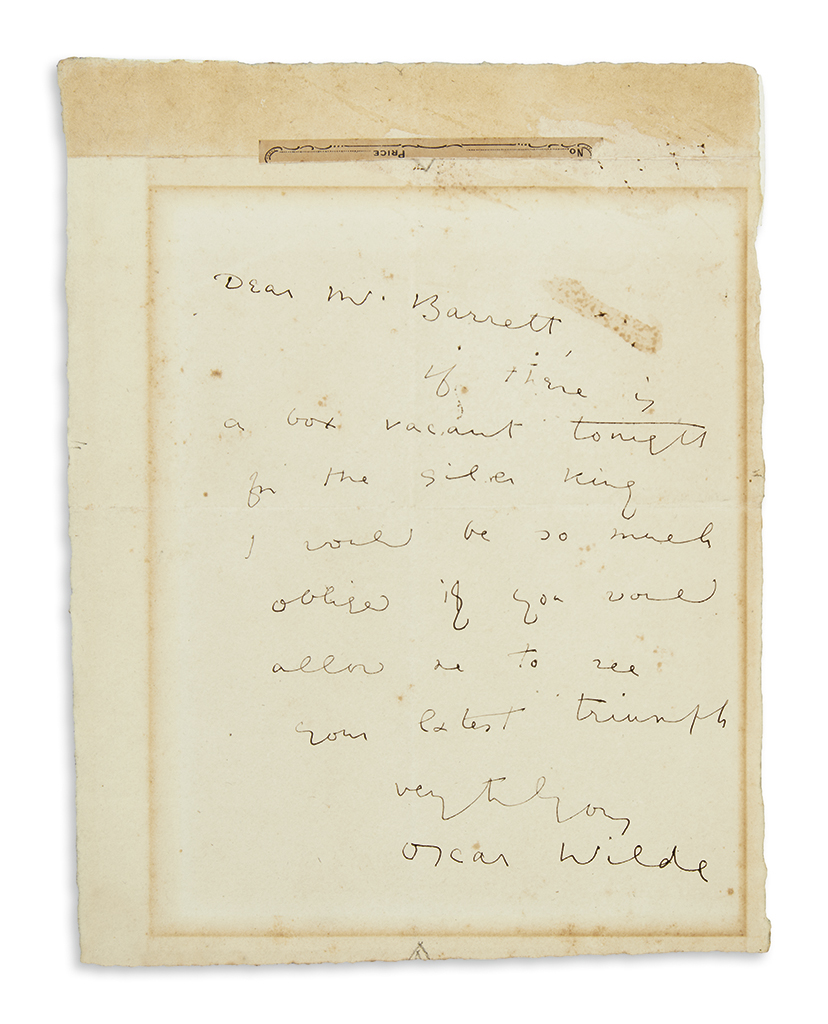 No PRICE
Dear Mr. Barrett,
if there is
a box vacant tonight
for the Silver King
I would be so much
obliged if you would
allow me to see
your latest triumph
very truly yours
Oscar Wilde